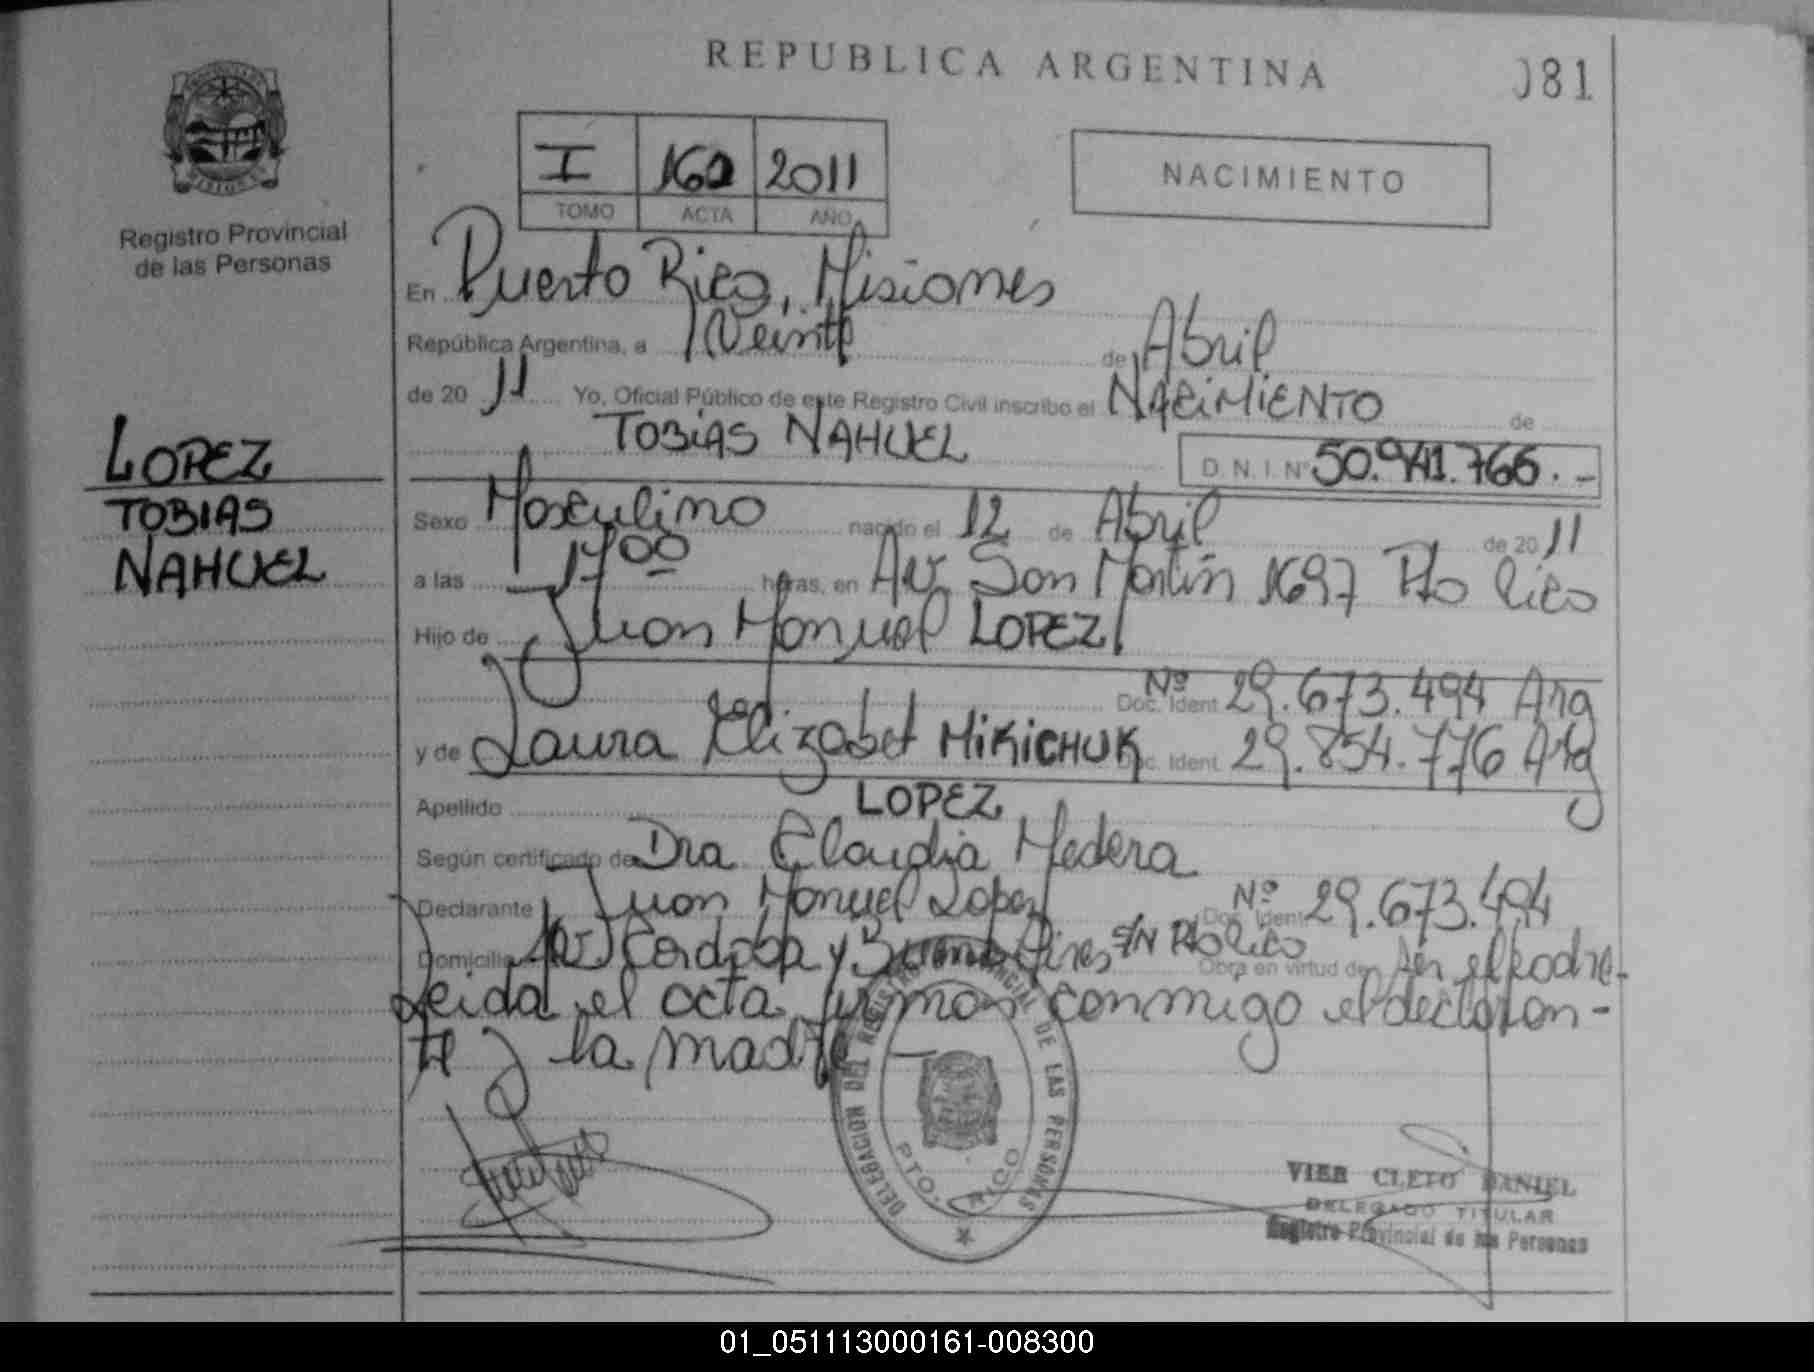 REPUBLICA ARGENTINA
081
Registro Provincial
de las Personas
I 160 2011
TOMO ACTA AÑO
NACIMIENTO
En Puerto Rico, Misiones
República Argentina, a Veinte de Abril
de 20 11 Yo, Oficial Público de este Registro Civil inscribo el NACIMIENTO de
TOBIAS NAHUEL D.N.I. Nº 50.941.766.-
LOPEZ
TOBIAS
NAHUEL
Sexo Masculino nacido el 12 de Abril de 20 11
a las 17 00 horas, en Av. San Martin 1697 Pto Rico
Hijo de Juan Manuel LOPEZ
Nº Doc. Ident. 29.673.494 Arg
y de Laura Elizabet MIKICHUK Doc. Ident. 29.854.776 Arg
Apellido LOPEZ
Según certificado de Dra Claudia Medera
Declarante Juan Manuel Lopez Nº Doc. Ident. 29.673.494
Domicilio Av Cordoba y Buenos Aires S/N Pto Rico Obra en virtud de Ser el padre.
Leida el acta firman conmigo el declaran-
te y la madre
DELEGACION DEL REGISTRO PROVINCIAL DE LAS PERSONAS
PTO. RICO
VIER CLETO DANIEL
DELEGADO TITULAR
Registro Provincial de las Personas
01_051113000161-008300